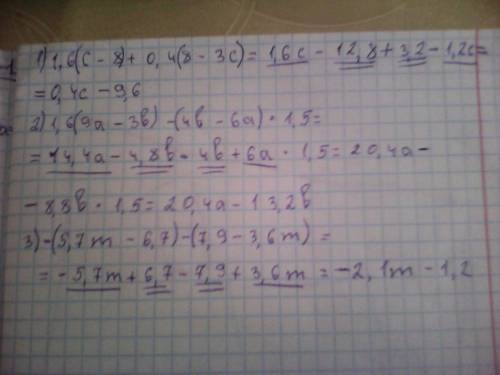 1) 1,6(с - 8) + 0,4(8 - 3с) = 1,6с - 12,8 + 3,2 - 1,2с =
= 0,4с - 9,6
2) 1,6(9а - 3в) - (4в - 6а) · 1,5 =
= 14,4а - 4,8в - 4в + 6а · 1,5 = 20,4а -
- 8,8в · 1,5 = 20,4а - 13,2в
3) -(5,7m - 6,7) - (7,9 - 3,6m) =
= -5,7m + 6,7 - 7,9 + 3,6m = -2,1m - 1,2